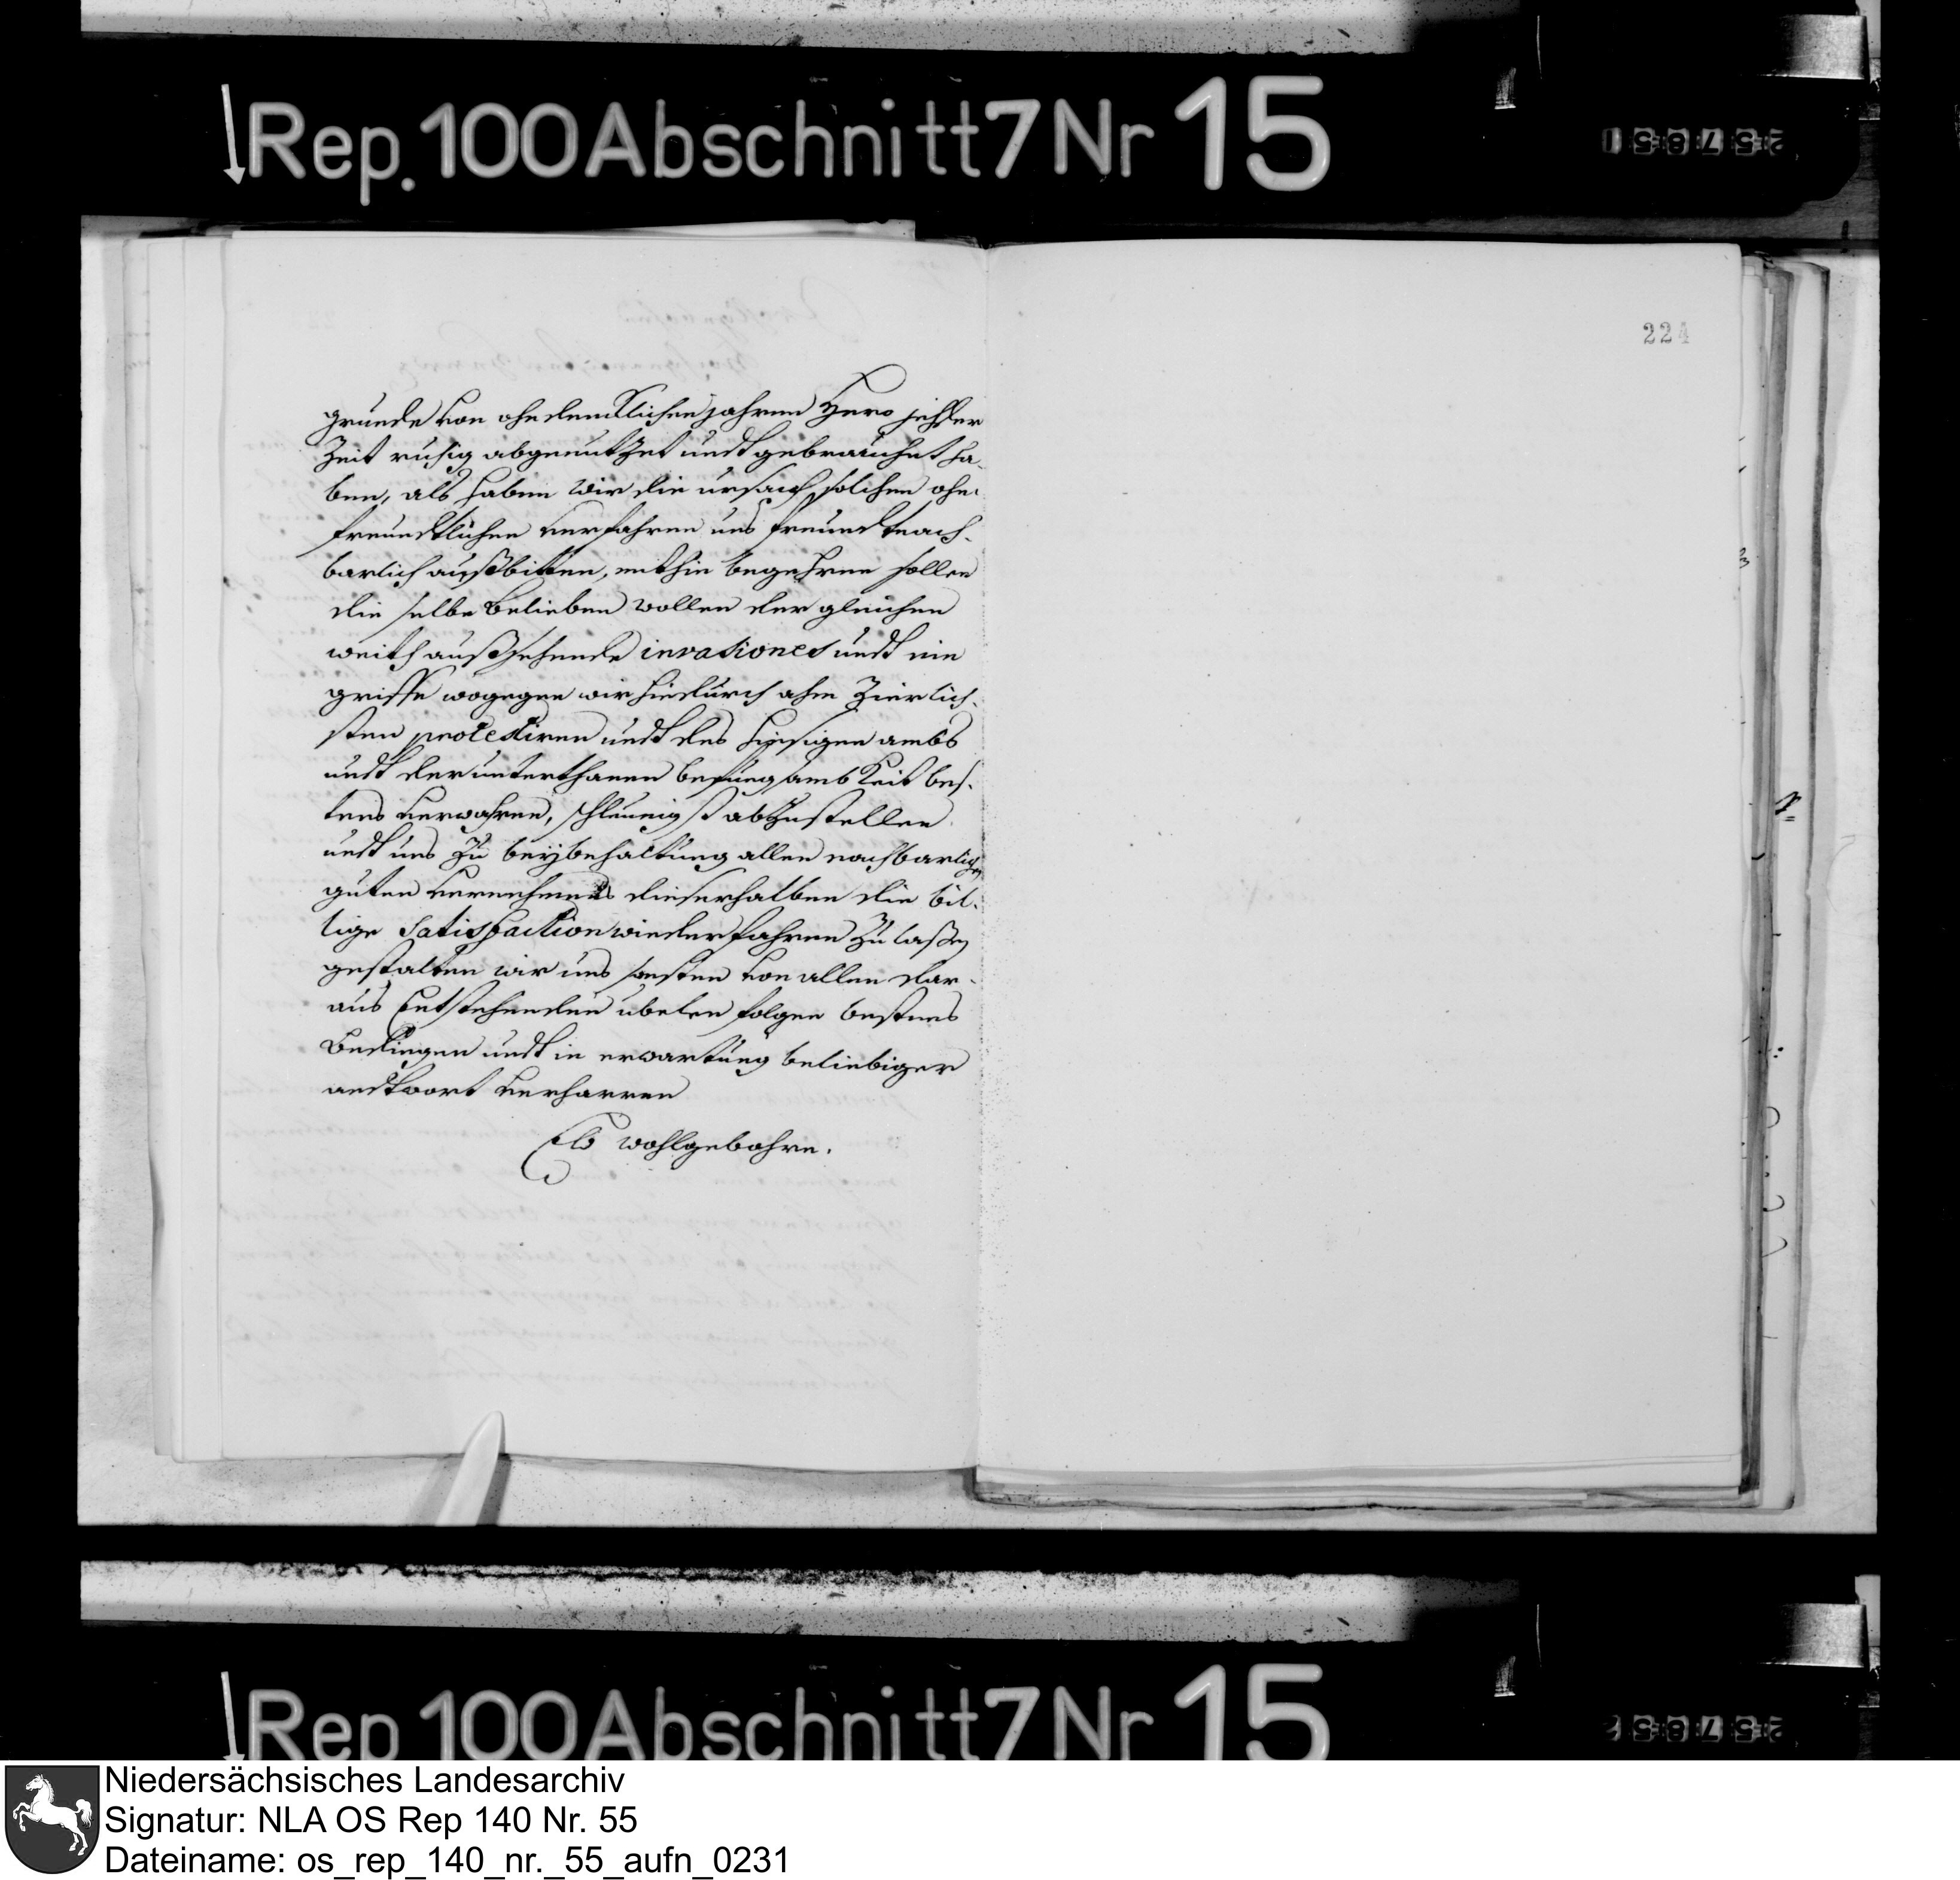 Rep. 100 Abschnitt 7 Nr 15
224
grunde von ohndencklichen jahren hero jehder
Zeit ruhig abgenutzet undt gebrauchet ha-
ben, als haben wir die ursach solchen ohn-
freundtlichen verfahren uns freundtnach-
barlich außbitten, mithin begehren sollen
die selbe belieben wollen der gleichen
weith außsehende invasiones undt ein
griffe wogegen wir hiedurch ahm Zierlich-
sten protestiren undt des hiesigen ambts
undt der unterthanen befüegsambkeit bes-
tens verwahren, schleunigst abzustellen
undt uns zu beybehaltung allen nachbarlichen
guten vernehmens dieserhalben die bil-
lige Satisfaction wiederfahren zu laßen
gestalten wir uns sonsten von allen dar-
aus Entstehenden übelen folgen bestens
Bedingen undt in erwartung beliebiger
andtwort verharren
Ew wohlgebohrn.
Rep 100 Abschnitt 7 Nr 15
Niedersächsisches Landesarchiv
Signatur: NLA OS Rep 140 Nr. 55
Dateiname: os_rep_140_nr._55_aufn_0231